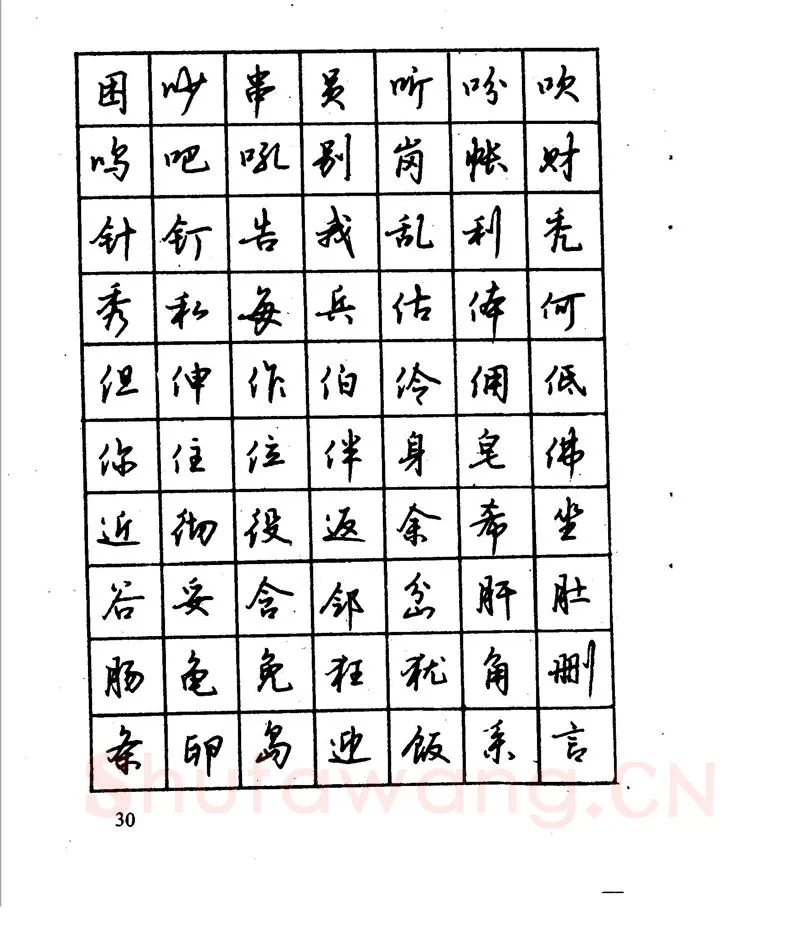 困 吵 串 员 听 吩 吹
呜 吧 吼 别 岗 帐 财
针 钉 告 我 乱 利 秃
秀 私 每 兵 估 体 何
但 伸 作 伯 伶 佣 低
你 住 位 伴 身 皂 佛
近 彻 役 返 余 希 坐
谷 妥 含 邻 岔 肝 肚
肠 龟 免 狂 犹 角 删
条 卵 岛 迎 饭 系 言
Shufawang.CN
30